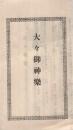 大々御神樂